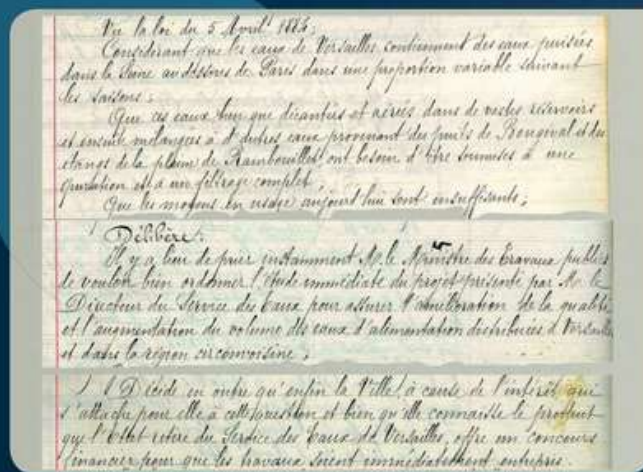 Vu la loi du 5 Avril 1884;
Considérant que les eaux de Versailles contiennent des eaux puisées
dans la Seine au dessous de Paris dans une proportion variable suivant
les saisons;
Que ces eaux bien que décantées et aérées dans de vastes réservoirs
et ensuite mélangées à d'autres eaux provenant des puits de Bougival et des
étangs de la plaine de Rambouillet ont besoin d'être soumises à une
épuration et à un filtrage complet;
Que les moyens en usage aujourd'hui sont insuffisants;
Délibère:
Il y a lieu de prier instamment M. le Ministre des Travaux publics
de vouloir bien ordonner l'étude immédiate du projet présenté par M. le
Directeur du Service des Eaux pour assurer l'amélioration de la qualité
et l'augmentation du volume des eaux d'alimentation distribuées à Versailles
et dans la région circonvoisine;
Décide en outre qu'enfin la Ville à cause de l'intérêt qui
s'attache pour elle à cette question et bien qu'elle connaisse le
que l'Etat retire du Service des Eaux de Versailles, offre un concours
financier pour que les travaux soient immédiatement entrepris.